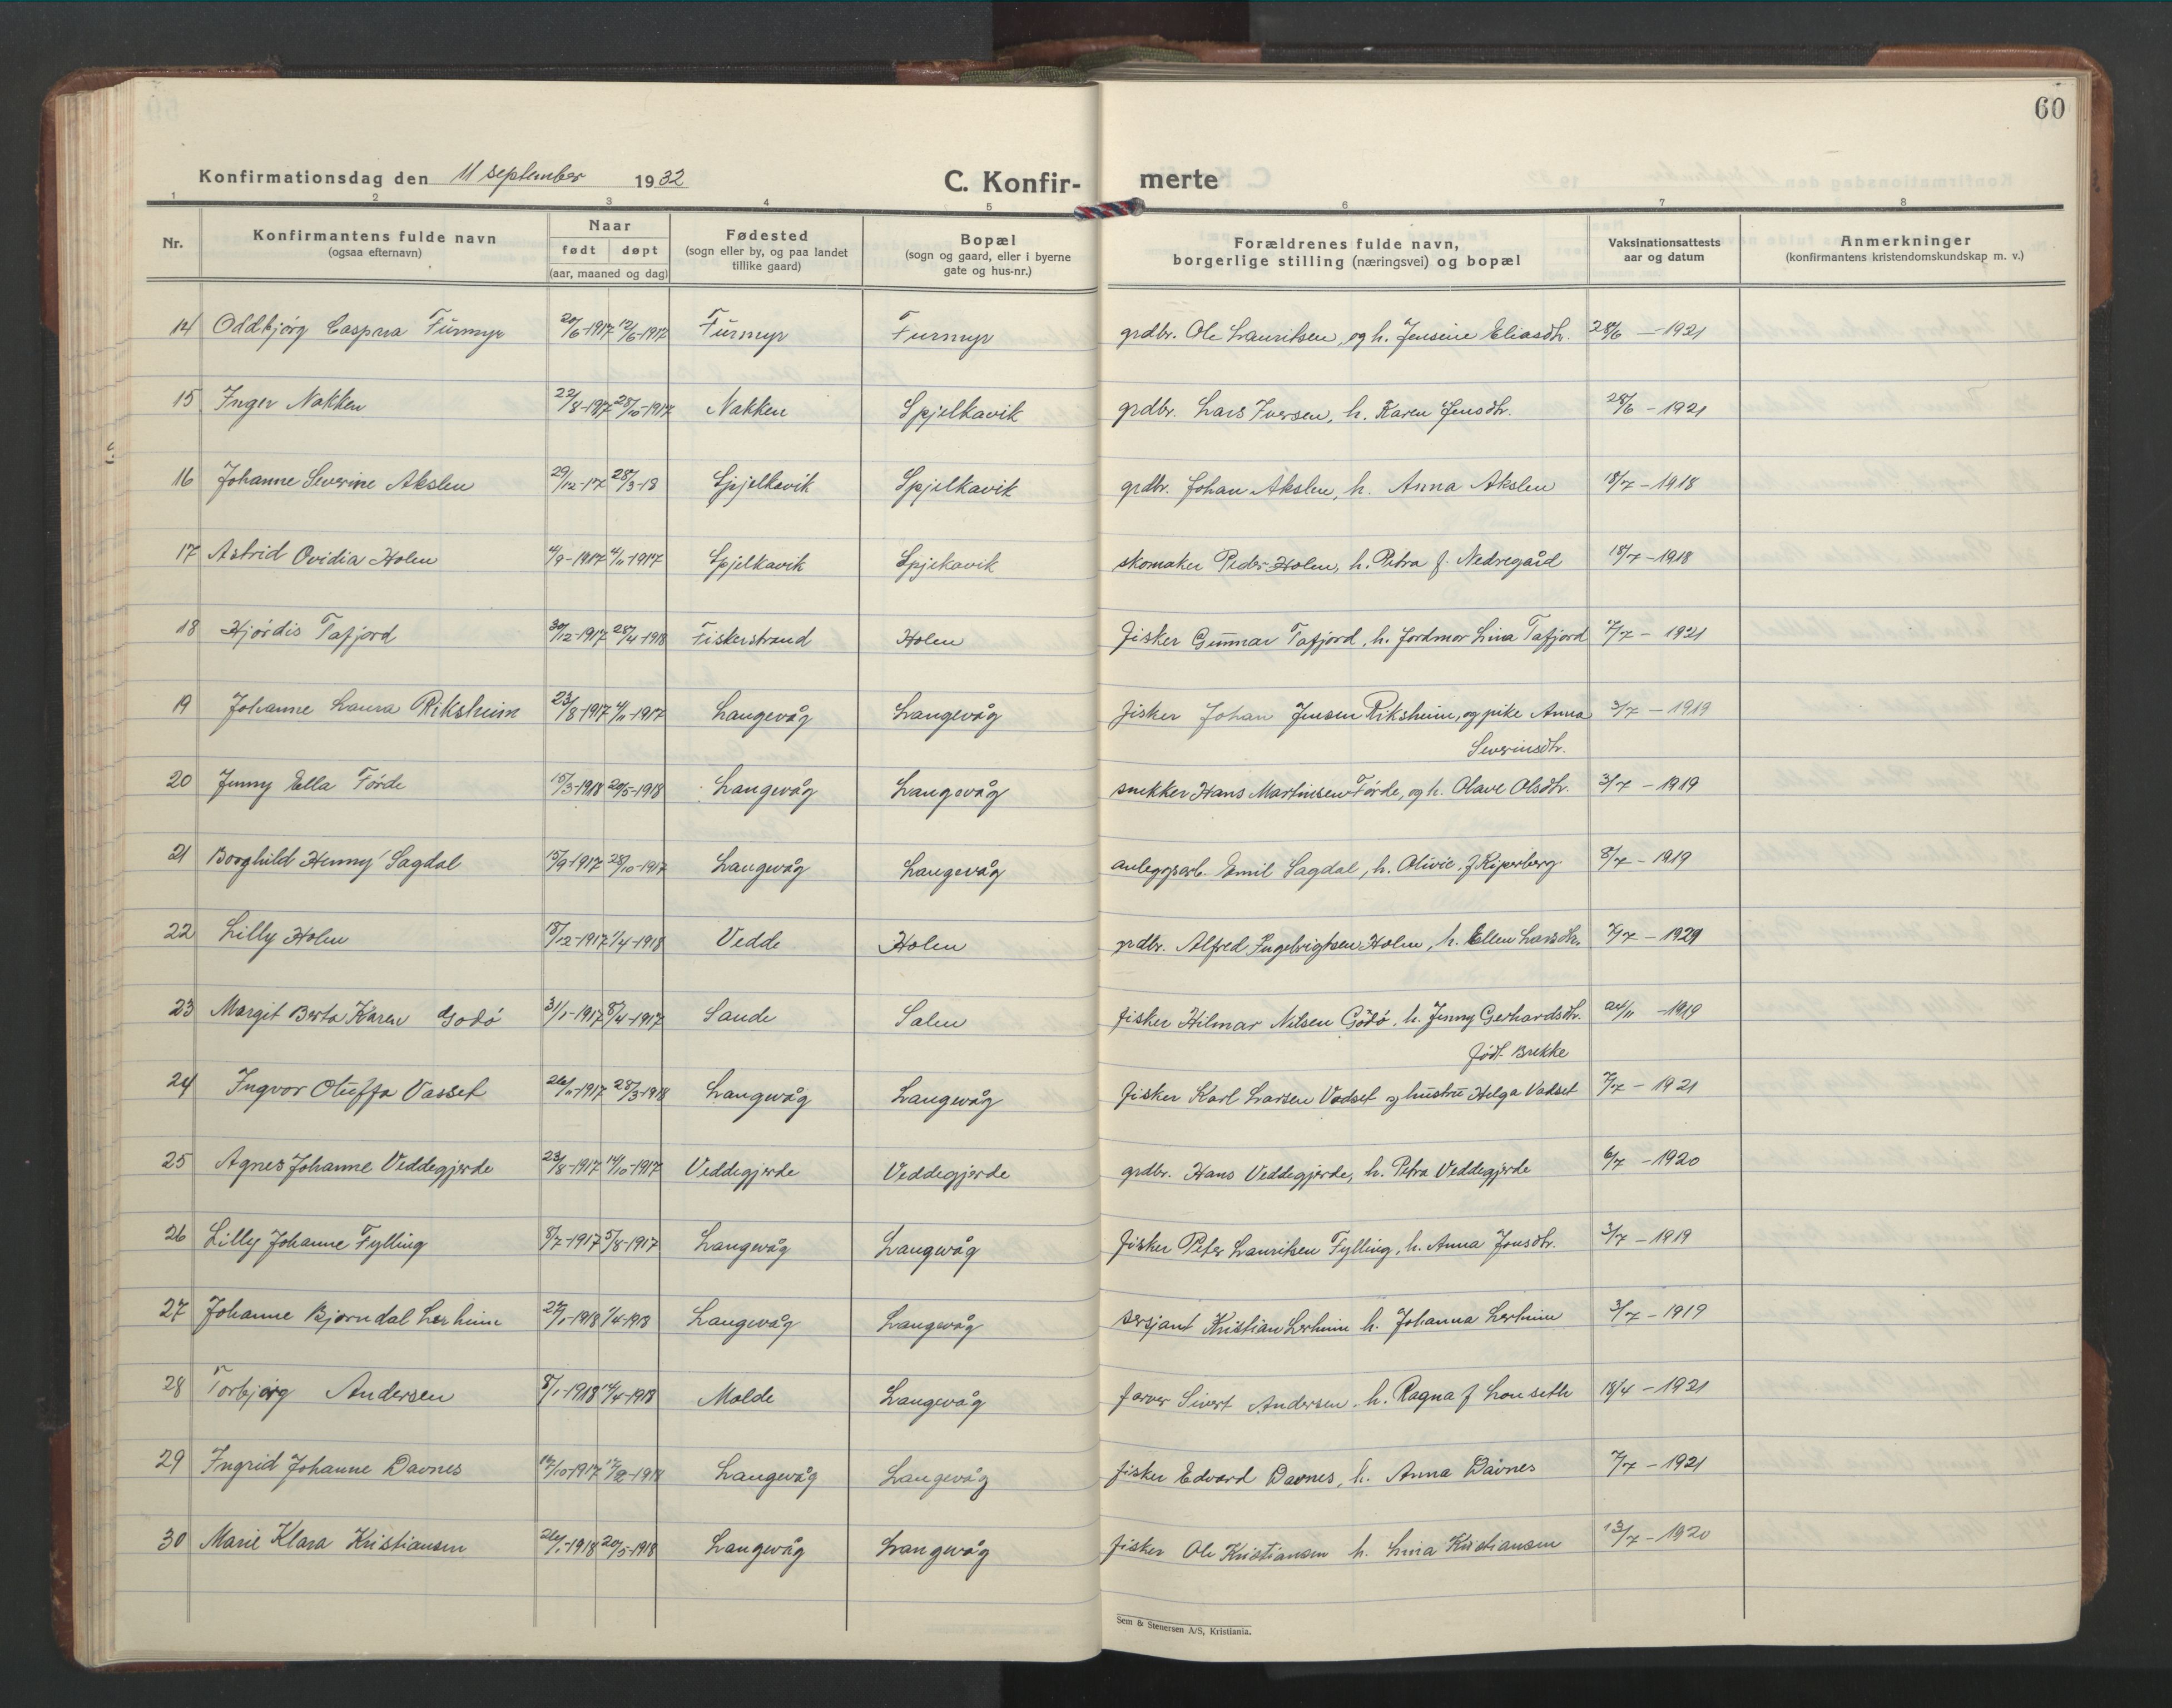 60
Konfirmationsdag den 11 september 1932
C. Konfir-
merte
1 2 3 4 5 6 7 8
Nr.
Konfirmantens fulde navn
(ogsaa efternavn)
Naar
født døpt
(aar, maaned og dag)
Fødested
(sogn eller by, og paa landet
tillike gaard)
Bopæl
(sogn og gaard, eller i byerne
gate og hus-nr.)
Forældrenes fulde navn,
borgerlige stilling (næringsvei) og bopæl
Vaksinationsattests
aar og datum
Anmerkninger
(konfirmantens kristendomskundskap m. v.)
14 Oddbjørg Caspara Furmyr 20/6-1917 12/6-1917 Furmyr Furmyr grdbr. Ole Lauritsen, og h. Jensine Eliasdtr. 28/6 - 1921
15 Inger Nakken 22/8-1917 28/10-1917 Nakken Spjelkavik grdbr. Lars Iversen, h. Karen Jensdtr. 28/6 - 1921
16 Johanne Severine Akslen 29/12-17 28/3-18 Spjelkavik Spjelkavik grdbr. Johan Akslen, h. Anna Akslen 18/7 - 1918
17 Astrid Ovidia Holen 4/9-1917 4/11-1917 Spjelkavik Spjekavik skomaker Peder Holen, h. Petra f. Nedregård 18/7-1918
18 Hjørdis Tafjord 30/12-1917 28/4-1918 Fiskerstrand Holen fisker Gunnar Tafjord, h. Jordmor Lina Tafjord 7/7 - 1921
19 Johanne Laura Riksheim 23/8-1917 4/11-1917 Langevåg Langevåg fisker Johan Jensen Riksheim, og pike Anna 3/7 - 1919
Severinsdtr.
20 Jenny Ella Førde 15/3-1918 20/5-1918 Langevåg Langevåg snekker Hans Martinsen Førde, og h. Olave Olsdtr. 3/7 - 1919
21 Borghild Henny Sagdal 15/9-1917 28/10-1917 Langevåg Langevåg anleggsarb. Emil Sagdal, h. Olivie, f. Kiperberg 8/7 - 1919
22 Lilly Holen 18/12-1917 1/4-1918 Vedde Holen grdbr. Alfred Ingebrigtsen Holen, h. Ellen Larsdtr. 7/7 - 1929
23 Margit Berta Karen Godø 31/1-1917 8/4-1917 Sande Salen fisker Hilmar Nilsen Godø, h. Jenny Gerhardsdtr. 24/11 -1919
født Brekke
24 Ingvor Oluffa Vasset 26/11-1917 28/3-1918 Langevåg Langevåg fisker Karl Larsen Vadset og hustru Helga Vadset 7/7 - 1921
25 Agnes Johanne Veddegjerde 23/8-1917 14/10-1917 Veddegjerde Veddegjerde grdbr. Hans Veddegjerde, h. Petra Veddegjerde 6/7 - 1920
26 Lilly Johanne Fylling 8/7-1917 5/8-1917 Langevåg Langevåg fisker Peter Lauritsen Fylling, h. Anna Jonsdtr. 3/7 - 1919
27 Johanne Bjørndal Lerheim 27/1-1918 1/4-1918 Langevåg Langevåg sersjant Kristian Lerheim h. Johanna Lerheim 3/7 - 1919
28 Torbjørg Andersen 8/1-1918 14/4-1918 Molde Langevåg farver Sivert Andersen, h. Ragna f. Lonseth 18/4 - 1921
29 Ingrid Johanne Davnes 17/10-1917 17/2-1918 Langevåg Langevåg fisker Edvard Davnes, h. Anna Davnes 7/7 - 1921
30 Marie Klara Kristiansen 26/1-1918 20/5-1918 Langevåg Langevåg fisker Ole Kristiansen h. Lina Kristiansen 13/7 - 1920
Sem & Stenersen A/S, Kristiania.